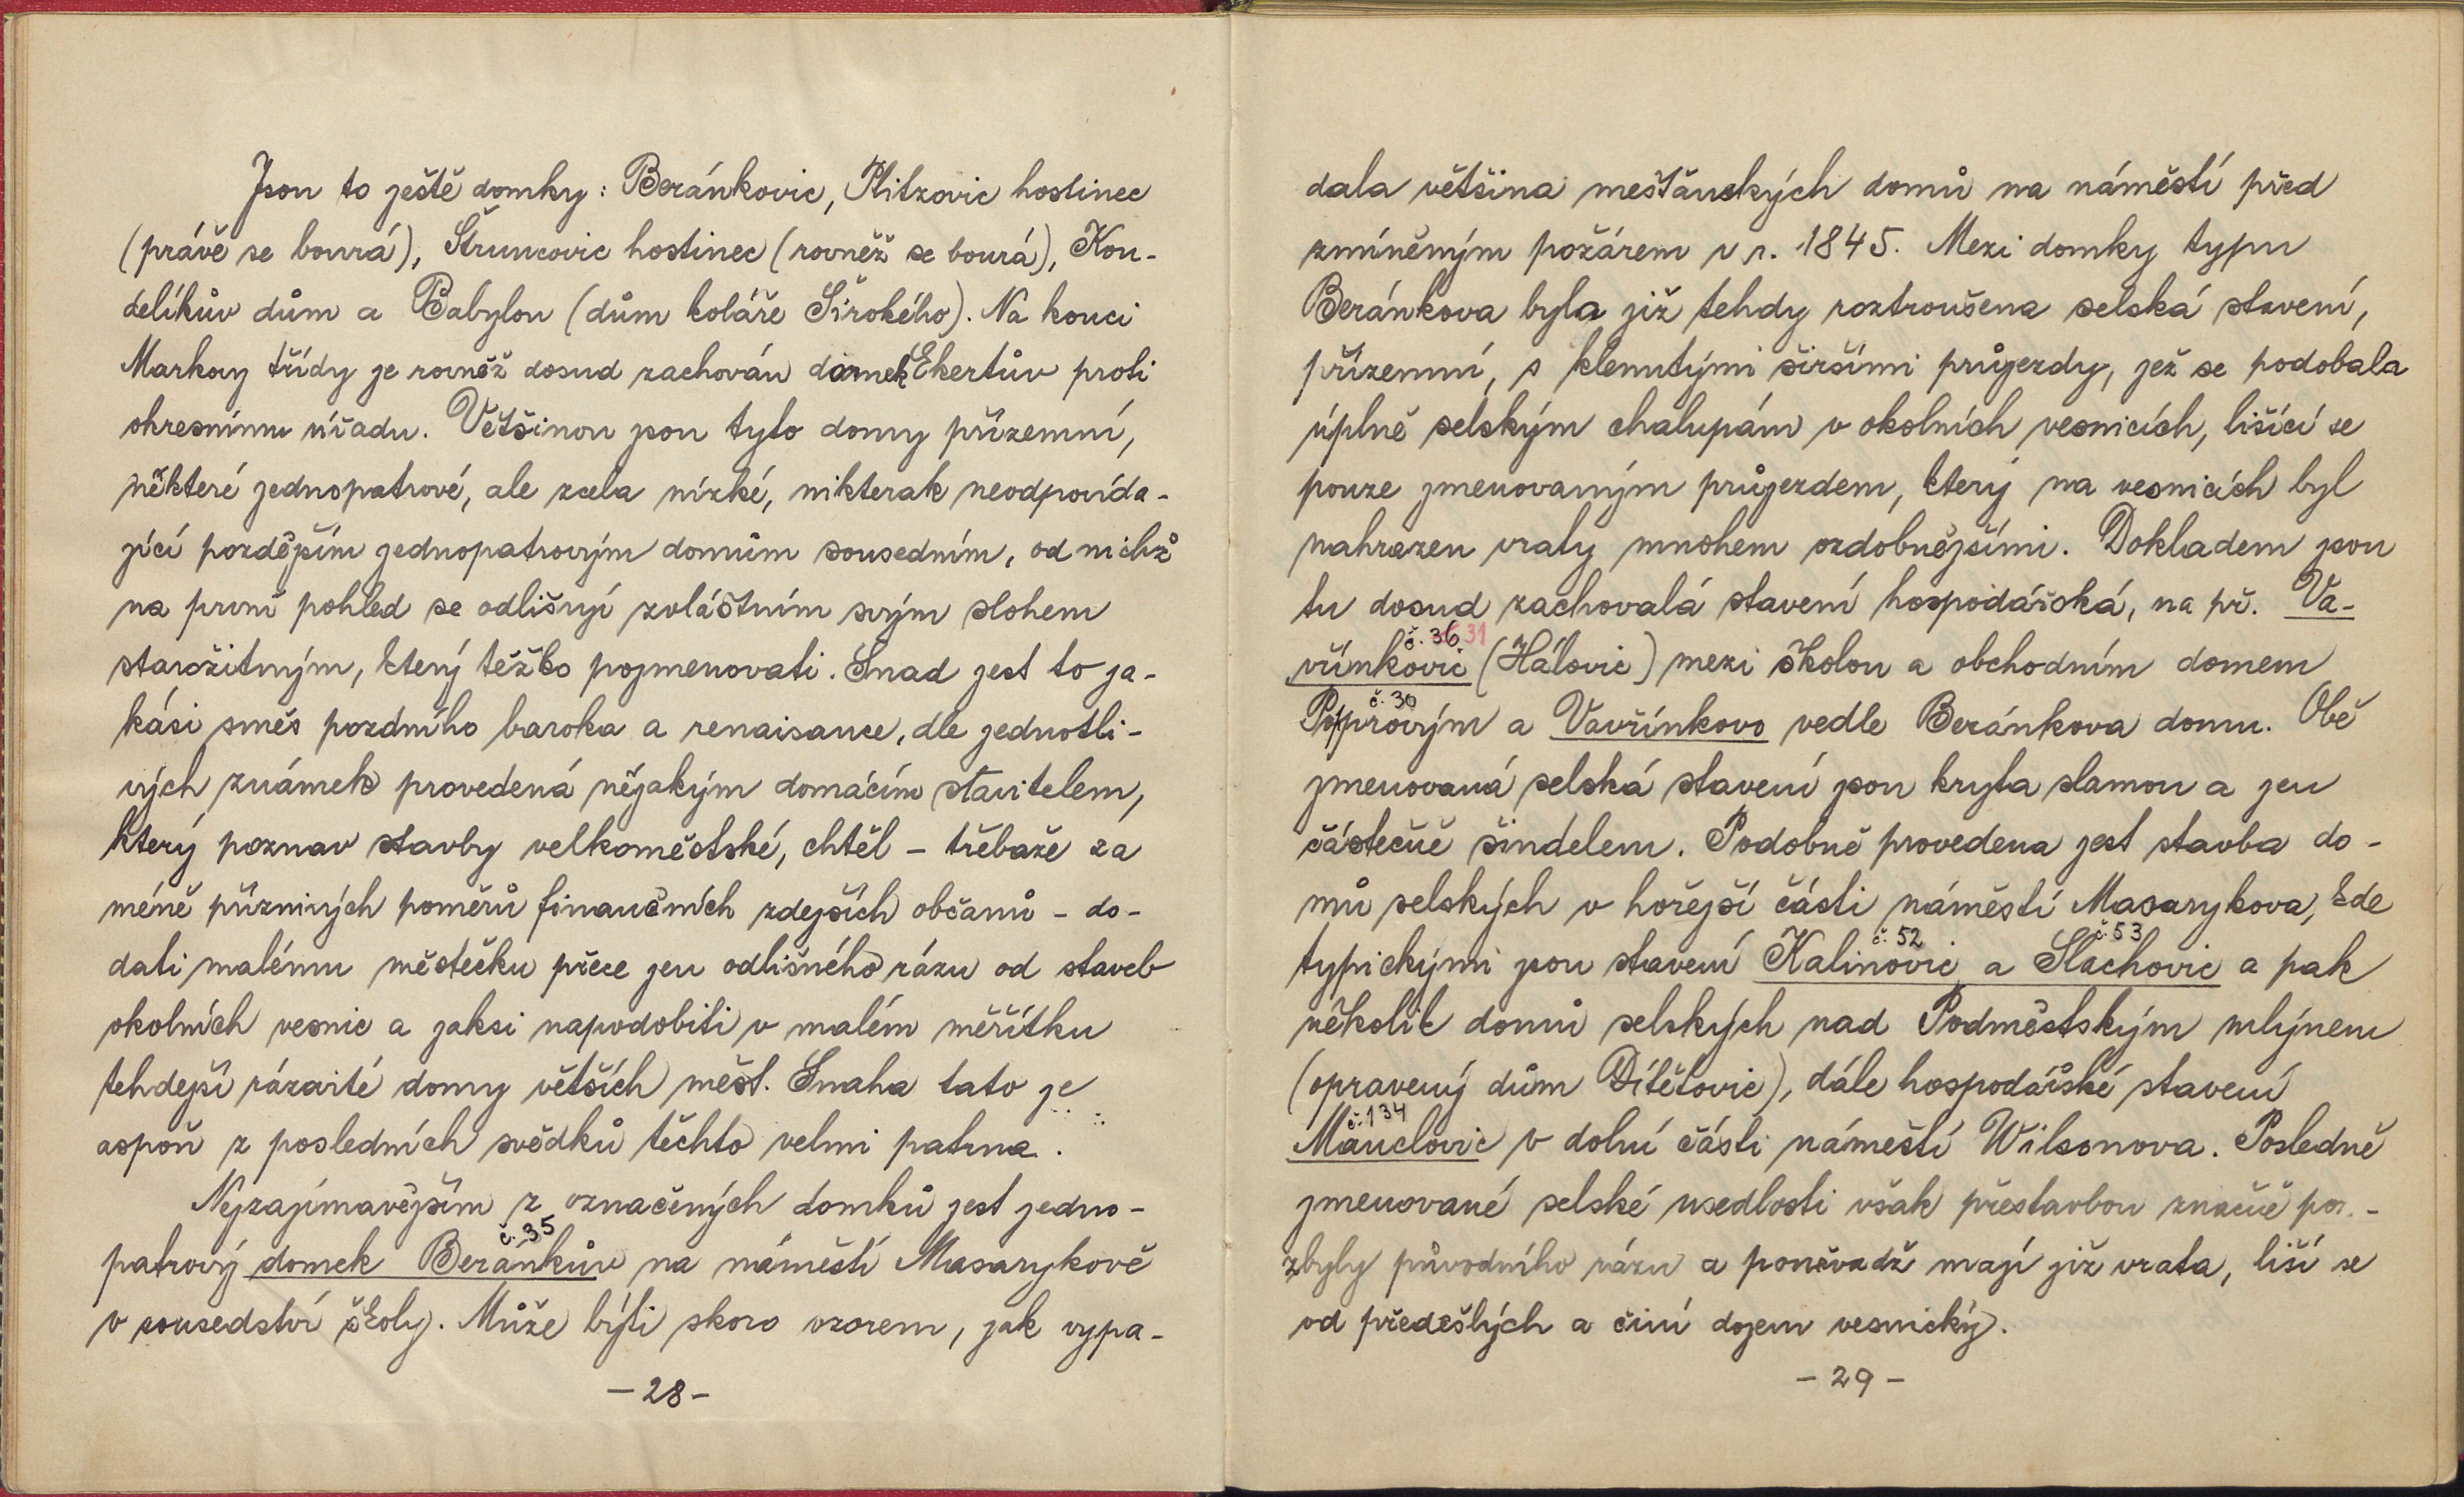 Jsou to ještě domky: Beránkovic, Plitzovic hostinec
(právě se bourá), Štruncovic hostinec (rovněž se bourá), Kou-
delíkův dům a Babylon (dům koláře Širokého). Na konci
Markovy třídy je rovněž dosud zachován domek Ekertův proti
okresnímu úřadu. Většinou jsou tyto domy přízemní,
některé jednopatrové, ale zcela nízké, nikterak neodpovída-
jící pozdějším jednopatrovým domům sousedním, od nichž
na první pohled se odlišují zvláštním svým slohem
starožitným, který těžko pojmenovati. Snad jest to ja-
kási směs pozdního baroka a renaisance, dle jednotli-
vých známek provedená nějakým domácím stavitelem,
který poznav stavby velkoměstské, chtěl - třebaže za
méně příznivých poměrů finančních zdejších občanů - do-
dati malému městečku přece jen odlišného rázu od staveb
okolních vesnic a jaksi napodobiti v malém měřítku
tehdejší rázovité domy větších měst. Snaha tato je
aspoň z posledních svědků těchto velmi patrna.
Nejzajímavějším z označených domků jest jedno-
č. 35
patrový domek Beránkův na náměstí Masarykově
v sousedství školy. Může býti skoro vzorem, jak vypa-
- 28 -
dala většina měšťanských domů na náměstí před
zmíněným požárem v r. 1845. Mezi domky typu
Beránkova byla již tehdy roztroušena selská stavení,
přízemní, s klenutými širšími průjezdy, jež se podobala
úplně selským chalupám v okolních vesnicích, lišící se
pouze jmenovaným průjezdem, který na vesnicích byl
nahrazen vraty mnohem ozdobnějšími. Dokladem jsou
tu dosud zachovalá stavení hospodářská, na př. Va-
č. 36 31
vřínkovic (Hálovic) mezi školou a obchodním domem
č. 30
Popprovým a Vavřínkovo vedle Beránkova domu. Obě
jmenovaná selská stavení jsou kryta slamou a jen
částečně šindelem. Podobně provedena jest stavba do-
mů selských v hořejší části náměstí Masarykova, kde
č. 52 č. 53
typickými jsou stavení Kalinovic a Šlachovic a pak
několik domů selských nad Podměstským mlýnem
(opravený dům Dítětovic), dále hospodářské stavení
č. 134
Manclovic v dolní části náměstí Wilsonova. Posledně
jmenované selské usedlosti však přestavbou značně po-
zbyly původního rázu a poněvadž mají již vrata, liší se
od předešlých a činí dojem vesnický.
- 29 -